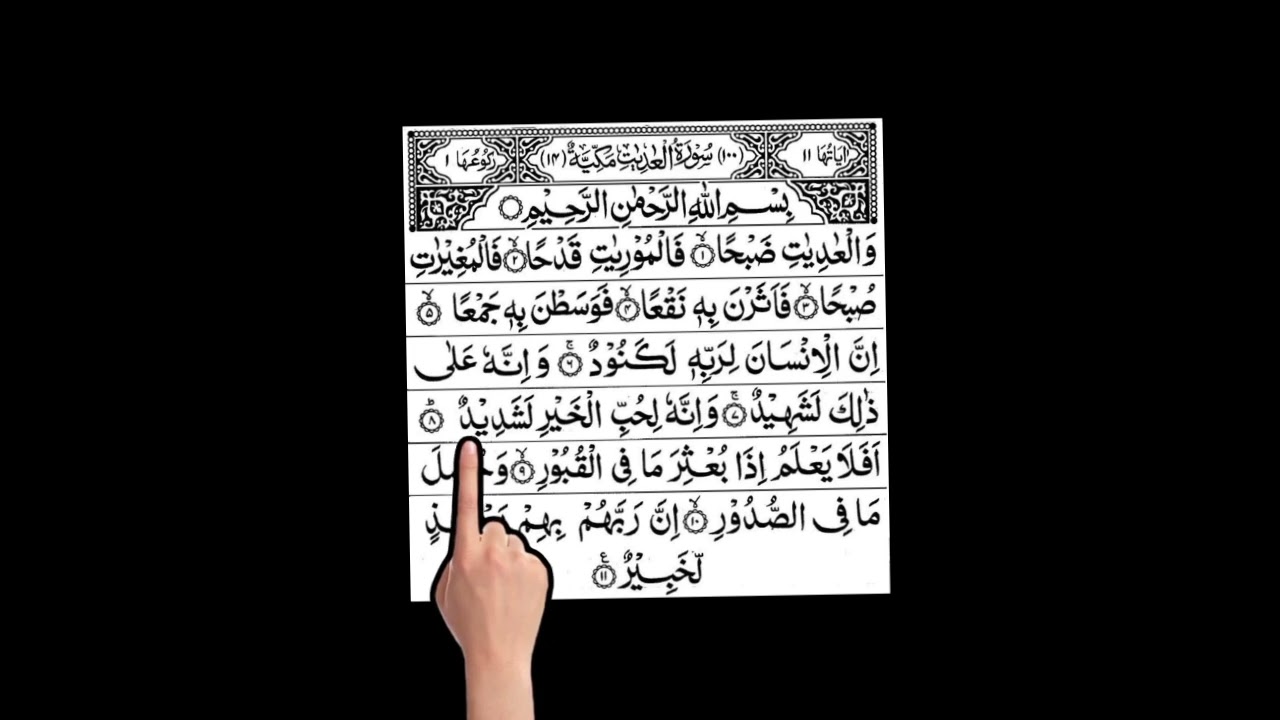 اٰیَاتُهَا ١١ (١٠٠) سُوْرَةُ الْعٰدِیٰتِ مَكِّیَّةٌ (١٤) رُكُوْعُهَا ١
بِسْمِ اللّٰهِ الرَّحْمٰنِ الرَّحِیْمِ
وَالْعٰدِیٰتِ ضَبْحًا ۙ﴿١﴾ فَالْمُوْرِیٰتِ قَدْحًا ۙ﴿٢﴾ فَالْمُغِیْرٰتِ
صُبْحًا ۙ﴿٣﴾ فَاَثَرْنَ بِهٖ نَقْعًا ۙ﴿٤﴾ فَوَسَطْنَ بِهٖ جَمْعًا ۙ﴿٥﴾
اِنَّ الْاِنْسَانَ لِرَبِّهٖ لَكَنُوْدٌ ۚ﴿٦﴾ وَاِنَّهٗ عَلٰی
ذٰلِكَ لَشَهِیْدٌ ۚ﴿٧﴾ وَاِنَّهٗ لِحُبِّ الْخَیْرِ لَشَدِیْدٌ ؕ﴿٨﴾
اَفَلَا یَعْلَمُ اِذَا بُعْثِرَ مَا فِی الْقُبُوْرِ ۙ﴿٩﴾
مَا فِی الصُّدُوْرِ ۙ﴿١٠﴾ اِنَّ رَبَّهُمْ بِهِمْ
لَّخَبِیْرٌ ﴿١١﴾ ع